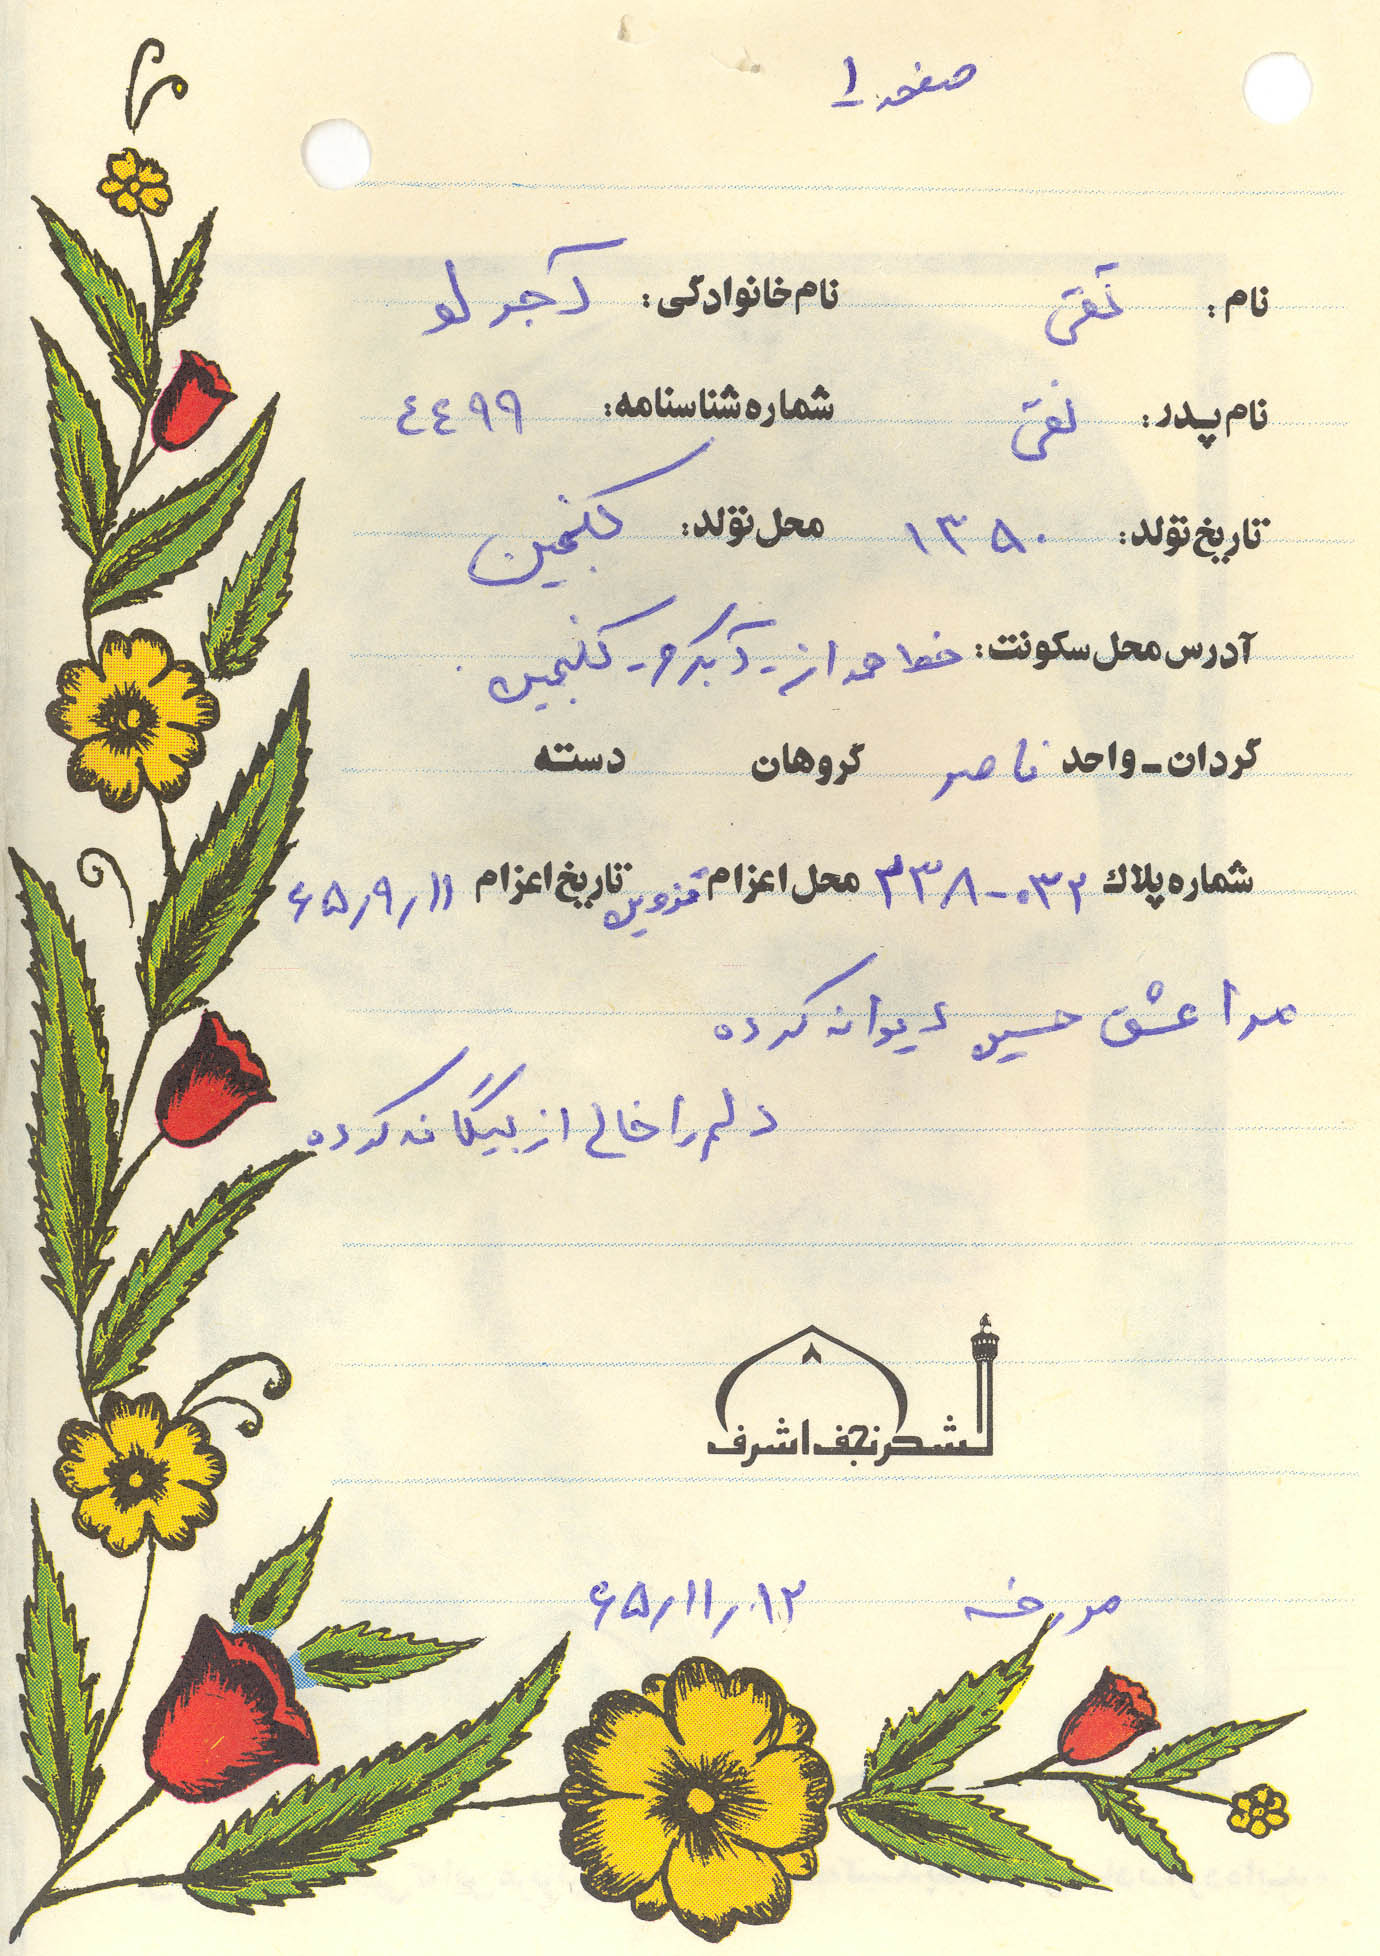 صفحه ۱
نام: تقی نام خانوادگی: آجرلو
نام پدر: نقی شماره شناسنامه: ٤٤۹۹
تاریخ تولد: ۱۳۵۰ محل تولد: گنبجین
آدرس محل سکونت: آبگرم - گنبجین
گردان - واحد ناصر گروهان دسته
شماره پلاك ۰۳۲-۳۳۸ محل اعزام قزوین تاریخ اعزام ۶۵٫۹٫۱۱
مرا عشق حسین دیوانه کرده
دلم را خالی از بیگانه کرده
لشکر نجف اشرف
۸
مورخه ۶۵٫۱۱٫۱۲